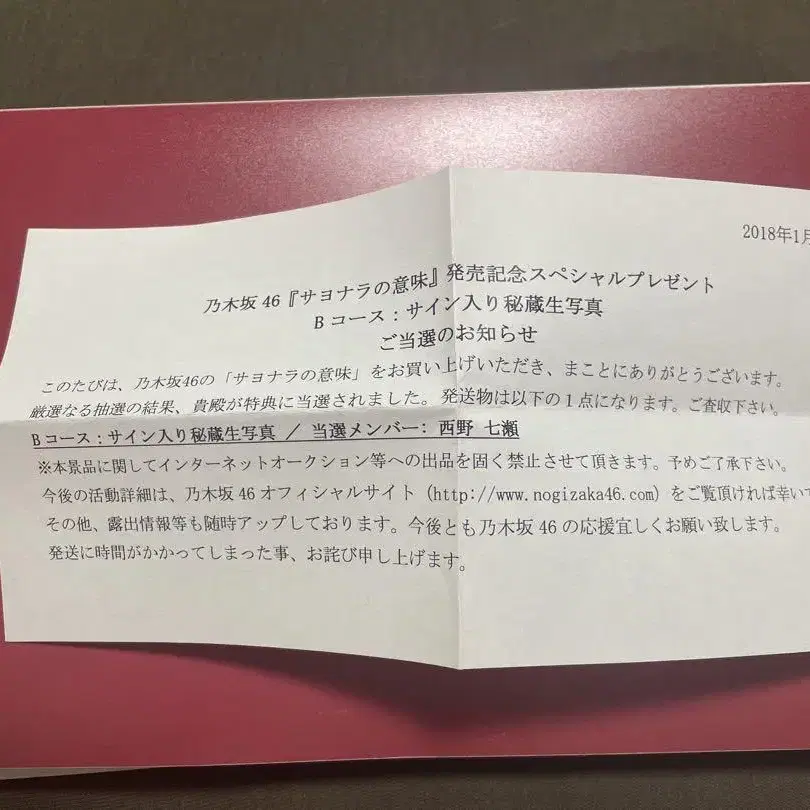 2018年1月
乃木坂46『サヨナラの意味』発売記念スペシャルプレゼント
Bコース：サイン入り秘蔵生写真
ご当選のお知らせ
このたびは、乃木坂46の「サヨナラの意味」をお買い上げいただき、まことにありがとうございます。
厳選なる抽選の結果、貴殿が特典に当選されました。発送物は以下の1点になります。ご査収下さい。
Bコース：サイン入り秘蔵生写真 ／ 当選メンバー: 西野 七瀬
※本景品に関してインターネットオークション等への出品を固く禁止させて頂きます。予めご了承下さい。
今後の活動詳細は、乃木坂46オフィシャルサイト (http://www.nogizaka46.com) をご覧頂ければ幸いで
その他、露出情報等も随時アップしております。今後とも乃木坂46の応援宜しくお願い致します。
発送に時間がかかってしまった事、お詫び申し上げます。